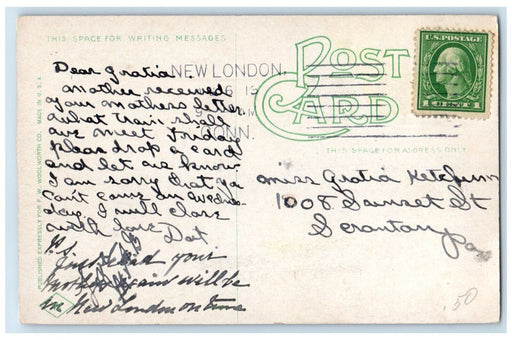 THIS SPACE FOR WRITING MESSAGES
POST CARD
THIS SPACE FOR ADDRESS ONLY
MADE IN U.S.A.
PUBLISHED EXPRESSLY FOR F. W. WOOLWORTH CO.
NEW LONDON,
CONN.
U.S. POSTAGE
1 CENT 1
Dear Gratia
Mother received
your mothers letter.
What train shall
we meet Friday
please drop a card
and let us know.
I am sorry that ya
can't come on Wednes-
day. I will close
with love Dot
P.S.
Just read your
will be
in New London on time
Miss Gratia Ketchum
1008 Sunset St
Scranton
Pa
.50